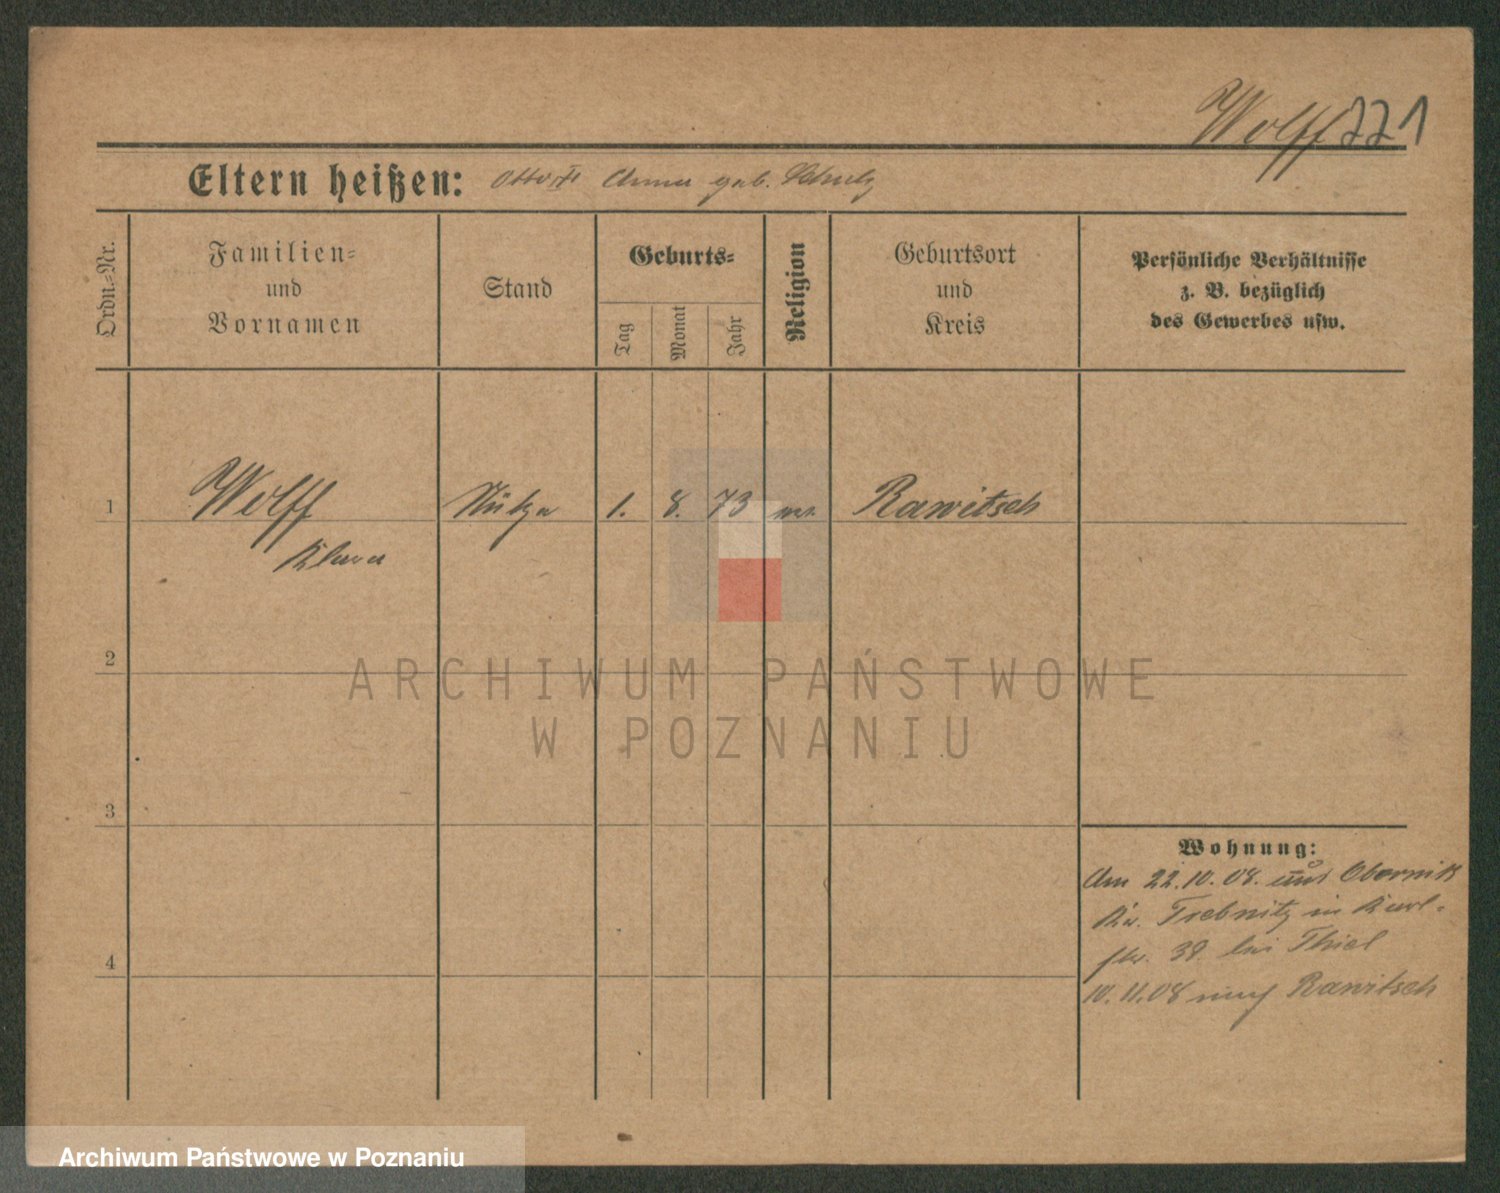 Wolff 221
Eltern heißen: Otto u. Anna geb. Schulz
Ordn.-Nr.
Familien-
und
Vornamen
Stand
Geburts-
Tag
Monat
Jahr
Religion
Geburtsort
und
Kreis
Persönliche Verhältnisse
z. B. bezüglich
des Gewerbes usw.
1
Wolff
Klara
1.
8.
73
Rawitsch
2
3
4
ARCHIWUM PAŃSTWOWE
W POZNANIU
Wohnung:
Am 22.10.08. aus Obernik
Kr. Trebnitz in Karl-
str. 38. bei Thiel
10.11.08 nach Rawitsch
Archiwum Państwowe w Poznaniu